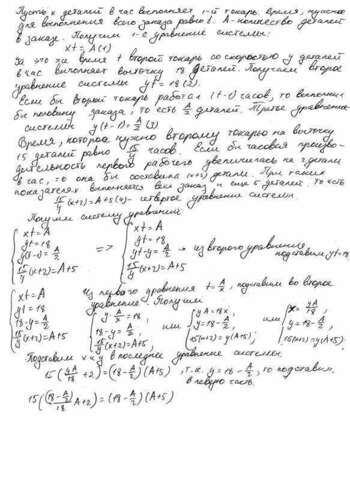 Пусть x деталей в час выполняет 1-й токарь. Время, нужное
для выполнения всего заказа равно t. A-количество деталей
в заказе. Получим 1-е уравнение системы:
xt = A (1)
За это же время t второй токарь со скоростью y деталей
в час выполняет выточку 18 деталей. Получаем второе
уравнение системы yt = 18 (2)
Если бы второй токарь работал (t-1) часов, то выполнил
бы половину заказа, то есть A/2 деталей. Третье уравнение
системы y(t-1) = A/2 (3)
Время, которое нужно второму токарю на выточку
15 деталей равно 15/y часов. Если бы часовая произво-
дительность первого рабочего увеличилась на 2 детали
в час, то она бы составила (x+2) детали. При таких
показателях выполняется весь заказ и еще 5 деталей, то есть
15/y (x+2) = A+5 (4) - четвертое уравнение системы.
Получим систему уравнений
xt = A
yt = 18
y(t-1) = A/2
15/y (x+2) = A+5
=>
xt = A
yt = 18
yt-y = A/2 → из второго уравнения подставим yt = 18
15/y (x+2) = A+5
xt = A
yt = 18
18-y = A/2
15/y (x+2) = A+5
Из первого уравнения t = A/x, подставим во второе
уравнение. Получим
y·A/x = 18,
18-y = A/2,
15/y (x+2) = A+5
или
yA = 18x,
y = 18 - A/2,
15(x+2) = y(A+5);
или
x = yA/18,
y = 18 - A/2,
15(x+2) = y(A+5)
Подставим x и y в последнее уравнение системы.
15(yA/18 + 2) = (18 - A/2)(A+5), т.к. y = 18 - A/2, то подставим
в левую часть.
15((18 - A/2)/18 A + 2) = (18 - A/2)(A+5)